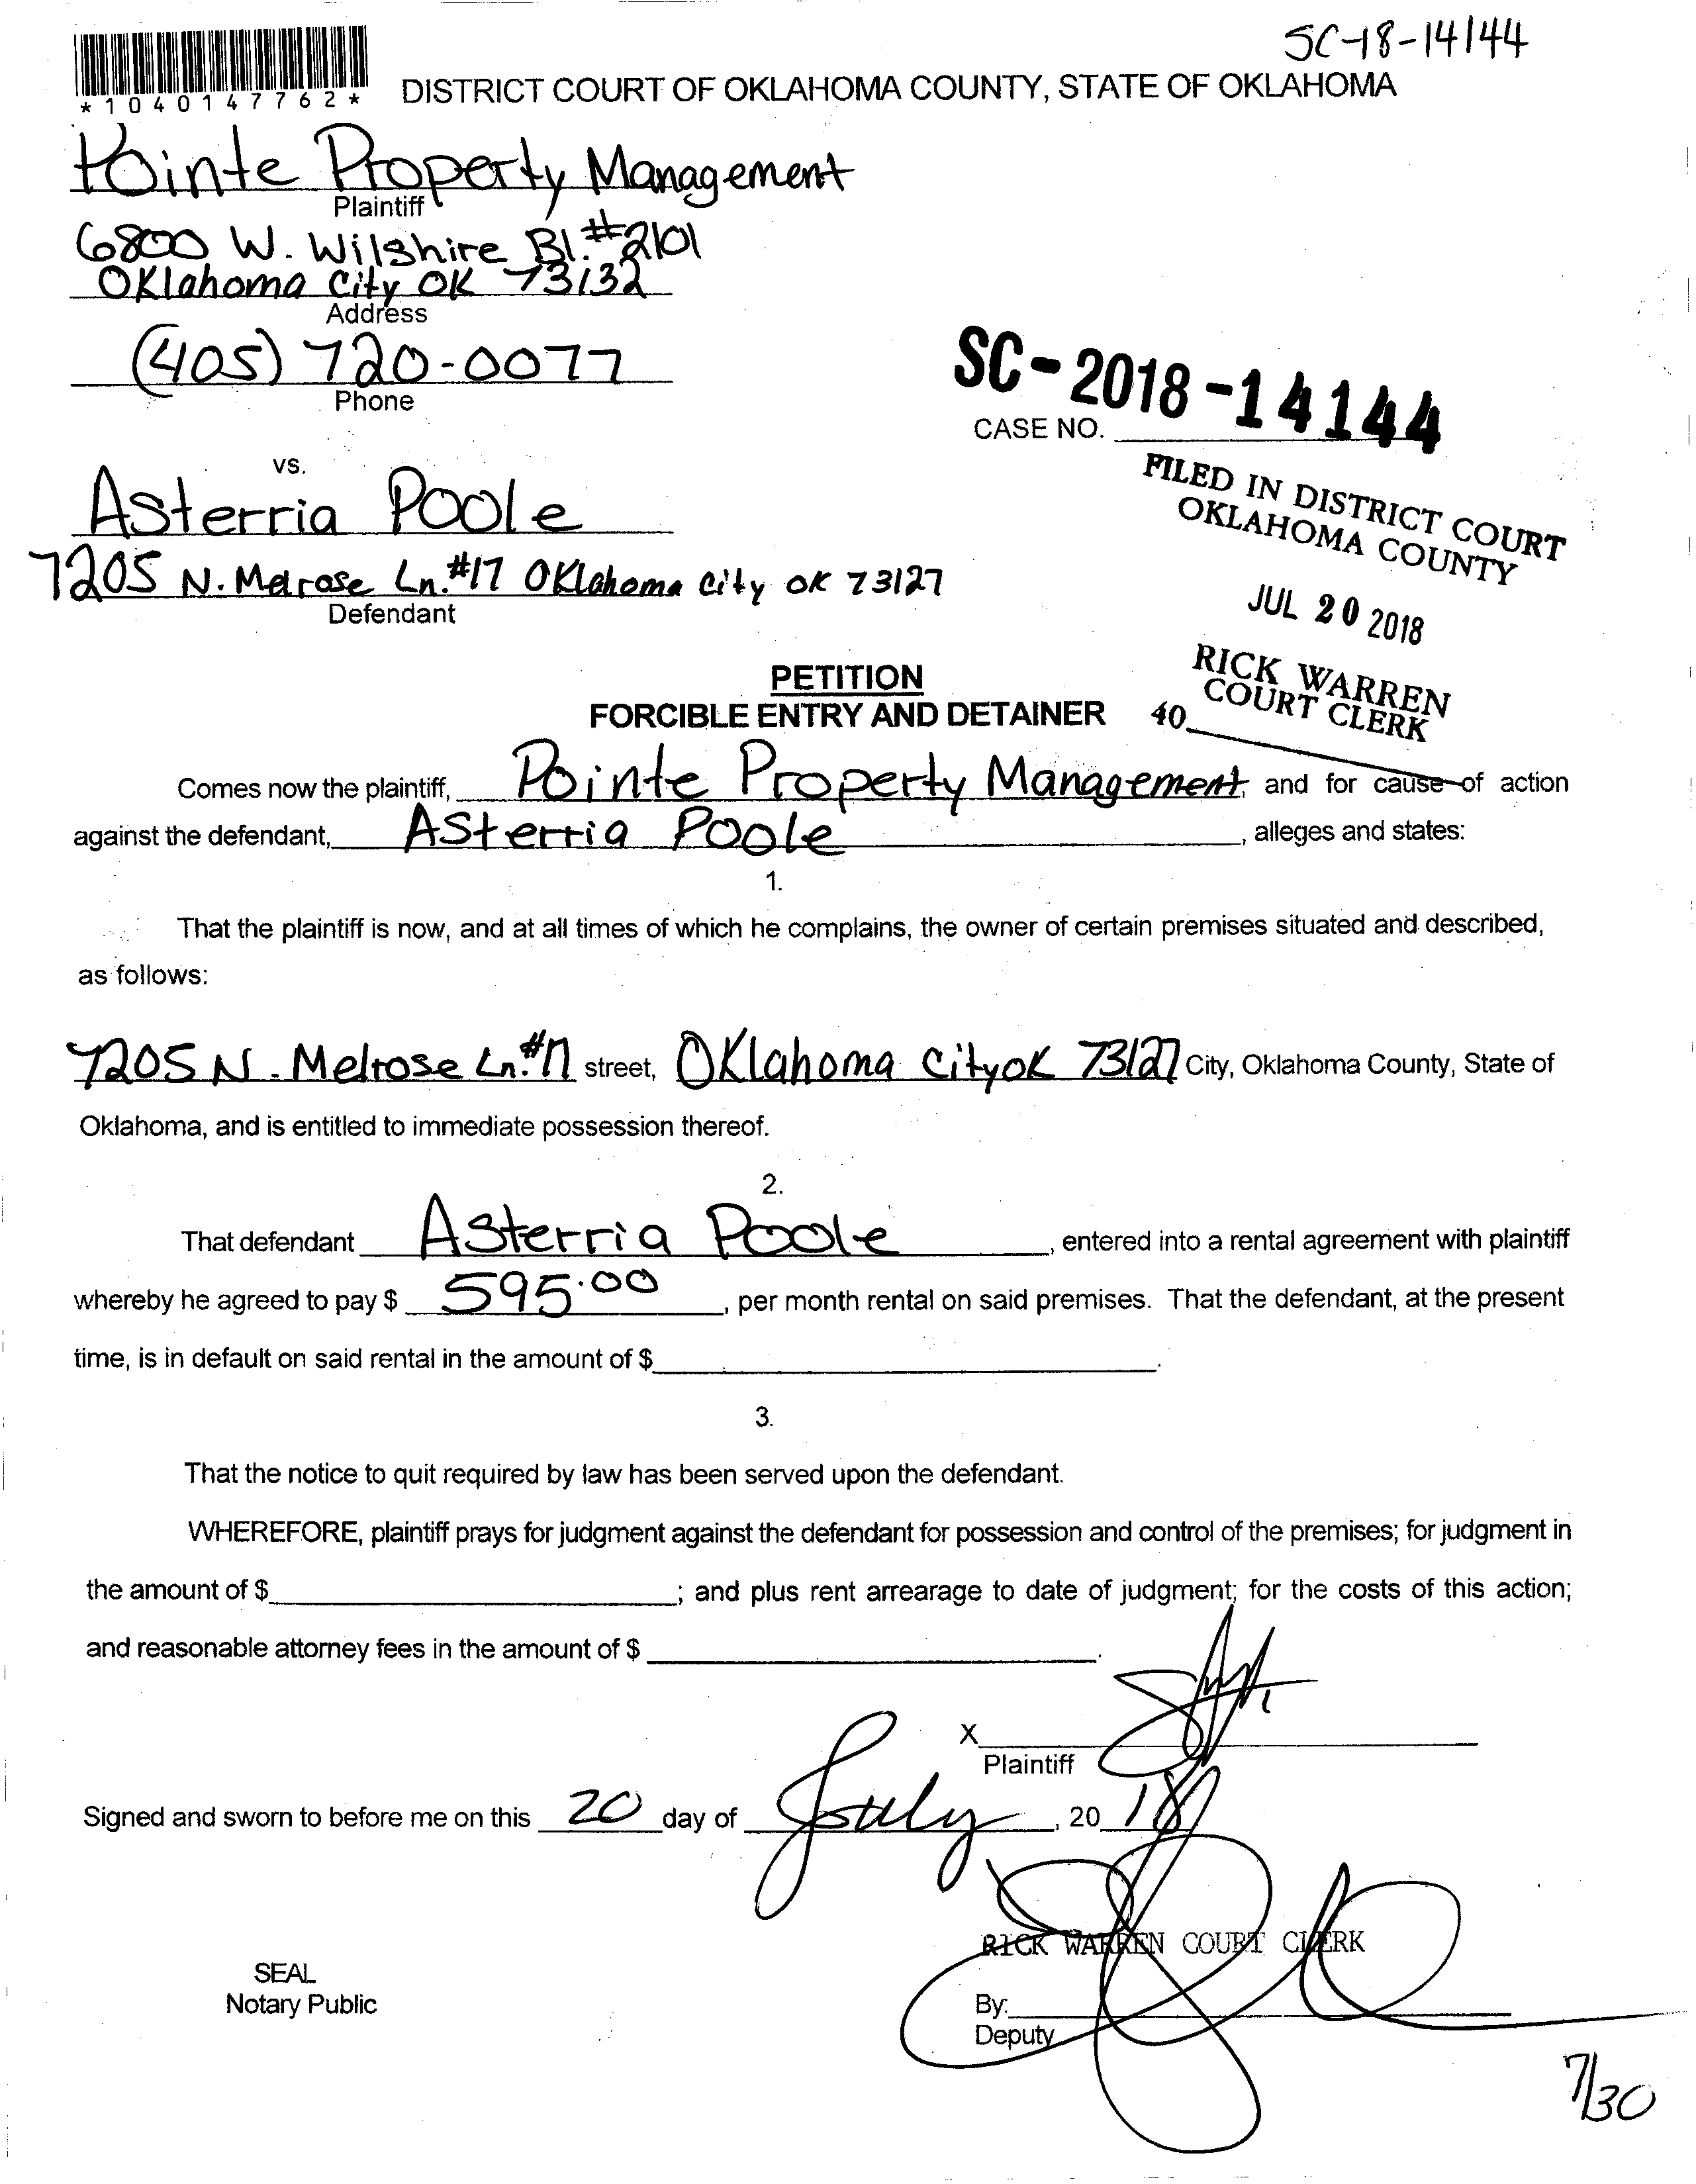 SC-18-14144
*1040147762*
DISTRICT COURT OF OKLAHOMA COUNTY, STATE OF OKLAHOMA
Pointe Property Management
Plaintiff
6800 W. Wilshire Bl. #2101
Oklahoma City OK 73132
Address
(405) 720-0077
Phone
SC-2018-14144
CASE NO.
vs.
Asterria Poole
7205 N. Melrose Ln. #17 Oklahoma City OK 73127
Defendant
FILED IN DISTRICT COURT
OKLAHOMA COUNTY
JUL 20 2018
RICK WARREN
COURT CLERK
40
PETITION
FORCIBLE ENTRY AND DETAINER
Comes now the plaintiff, Pointe Property Management, and for cause of action
against the defendant, Asterria Poole, alleges and states:
1.
That the plaintiff is now, and at all times of which he complains, the owner of certain premises situated and described,
as follows:
7205 N. Melrose Ln. #17 street, Oklahoma City OK 73127 City, Oklahoma County, State of
Oklahoma, and is entitled to immediate possession thereof.
2.
That defendant Asterria Poole, entered into a rental agreement with plaintiff
whereby he agreed to pay $ 595.00, per month rental on said premises. That the defendant, at the present
time, is in default on said rental in the amount of $.
3.
That the notice to quit required by law has been served upon the defendant.
WHEREFORE, plaintiff prays for judgment against the defendant for possession and control of the premises; for judgment in
the amount of $; and plus rent arrearage to date of judgment; for the costs of this action;
and reasonable attorney fees in the amount of $.
X
Plaintiff
Signed and sworn to before me on this 20 day of July, 2018
RICK WARREN COURT CLERK
SEAL
Notary Public
By:
Deputy
7/30